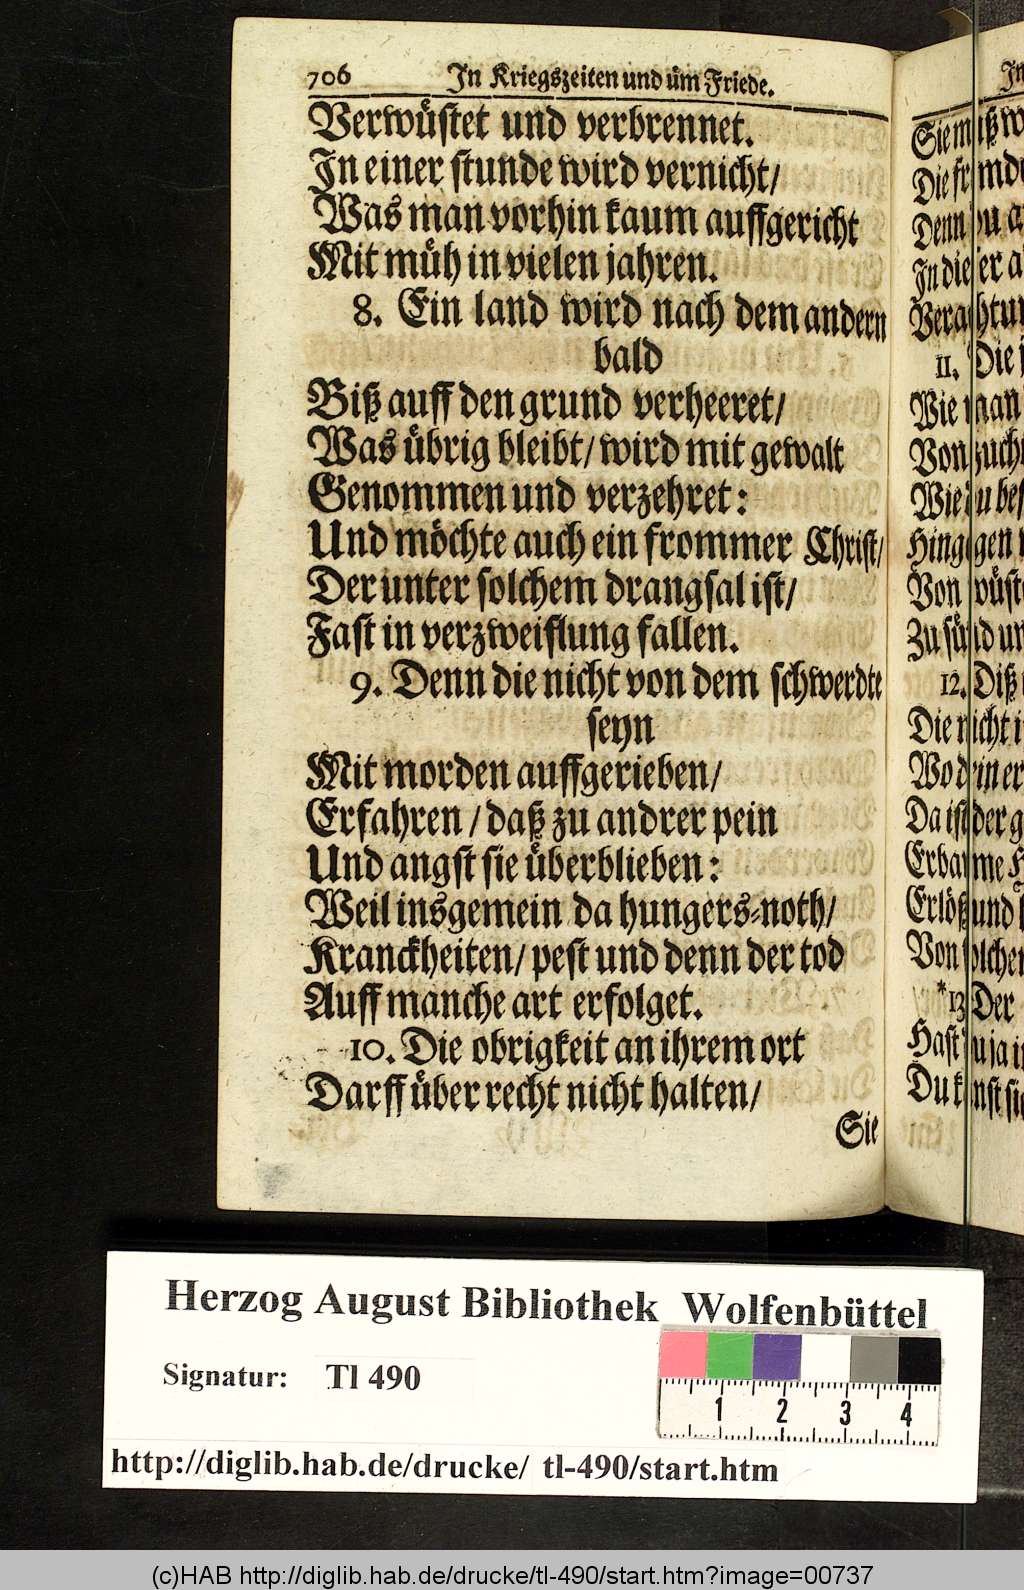 706 In Kriegszeiten und üm Friede.
Verwüstet und verbrennet.
In einer stunde wird vernicht/
Was man vorhin kaum auffgericht
Mit müh in vielen jahren.
8. Ein land wird nach dem andern
bald
Biß auff den grund verheeret/
Was übrig bleibt/ wird mit gewalt
Genommen und verzehret:
Und möchte auch ein frommer Christ/
Der unter solchem drangsal ist/
Fast in verzweiflung fallen.
9. Denn die nicht von dem schwerdte
seyn
Mit morden auffgerieben/
Erfahren/ daß zu andrer pein
Und angst sie überblieben:
Weil insgemein da hungers-noth/
Kranckheiten/ pest und denn der tod
Auff manche art erfolget.
10. Die obrigkeit an ihrem ort
Darff über recht nicht halten/
Sie
Die
Denn
11. Die
Wie man
Von zucht
Von
12. Diß
Die nicht
Da ist der
Erbarme
Erlöß und
Von solchen
*13 Der
Hast
Herzog August Bibliothek Wolfenbüttel
Signatur: Tl 490
1 2 3 4
http://diglib.hab.de/drucke/ tl-490/start.htm
(c)HAB http://diglib.hab.de/drucke/tl-490/start.htm?image=00737